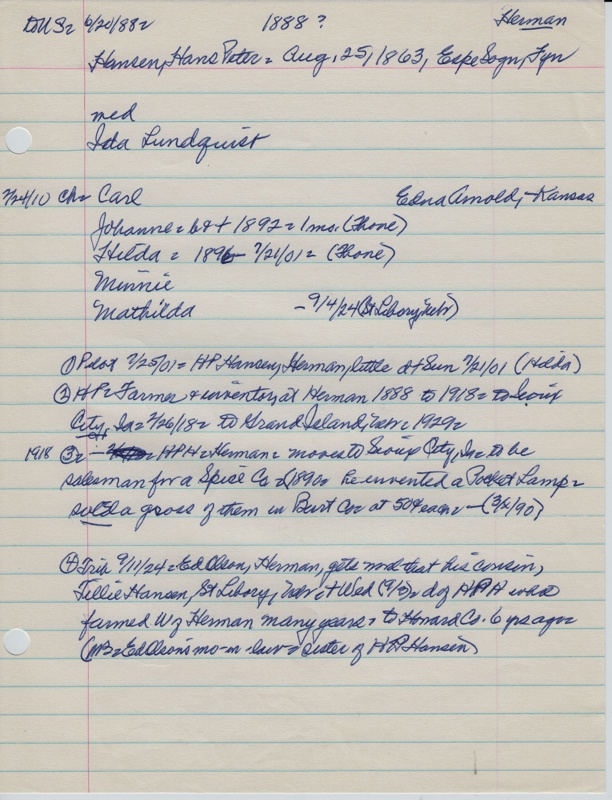 6/20/88 1888 ? Herman
Hansen, Hans Peter = Aug. 25, 1863, Espe Sogn, Fyn
md
Ida Lundquist
7/24/10 ch = Carl Edna Arnold, - Kansas
Johanne = b & + 1892 = 1 mo. (Phone)
Hilda = 1896 - 7/21/01 = (Phone)
Minnie
Mathilda - 9/4/24 (St Libory, Nebr)
① Pilot 7/25/01 = HP Hansen, Herman, little d + Sun 7/21/01 (Hilda)
② HP = Farmer & inventor, at Herman 1888 to 1918 = to Sioux
City, Ia = 7/26/18 = to Grand Island, Nebr = 1929 =
1918 ③ = HPH = Herman = moves to Sioux City, Ia to be
salesman for a Spice Co = (1890 he invented a Pocket Lamp =
sold a gross of them in Burt Co = at 50¢ each = (3/2/90)
④ Trib 9/11/24 = Ed Olson, Herman, gets md that his cousin,
Tillie Hansen, St Libory, Nebr = + Wed (9/3) = d of HPH who
farmed W of Herman many years = to Howard Co. 6 yrs ago =
(NB = Ed Olson's mo-in-law = sister of HP Hansen)